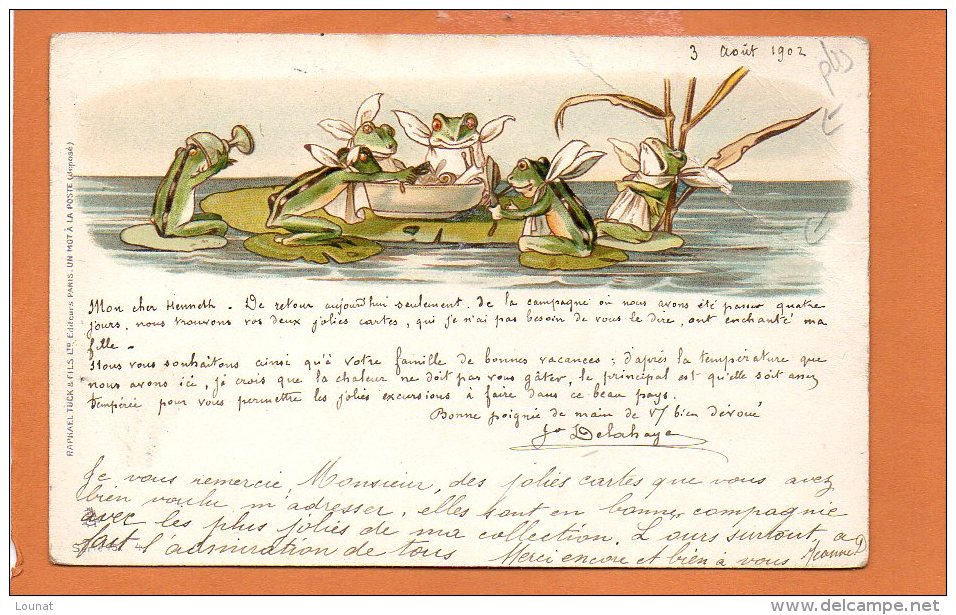 3 Août 1902
plis
RAPHAEL TUCK & FILS, LTD. Editeurs PARIS. UN MOT À LA POSTE (déposé)
Mon cher Henneth - De retour aujourd'hui seulement, de la campagne où nous avons été passer quatre
jours, nous trouvons vos deux jolies cartes, qui je n'ai pas besoin de vous le dire, ont enchanté ma
fille -
Nous vous souhaitons ainsi qu'à votre famille de bonnes vacances ; d'après la température que
nous avons ici, je crois que la chaleur ne doit pas vous gâter, le principal est qu'elle soit assez
tempérée pour vous permettre les jolies excursions à faire dans ce beau pays.
Bonne poignée de main de V/ bien dévoué
Jo Delahaye
Je vous remercie, Monsieur, des jolies cartes que vous avez
bien voulu m'adresser, elles sont en bonne compagnie
avec les plus jolies de ma collection. L'ours surtout, a
fait l'admiration de tous Merci encore et bien à vous Jeanne D
Lounat
www.delcampe.net